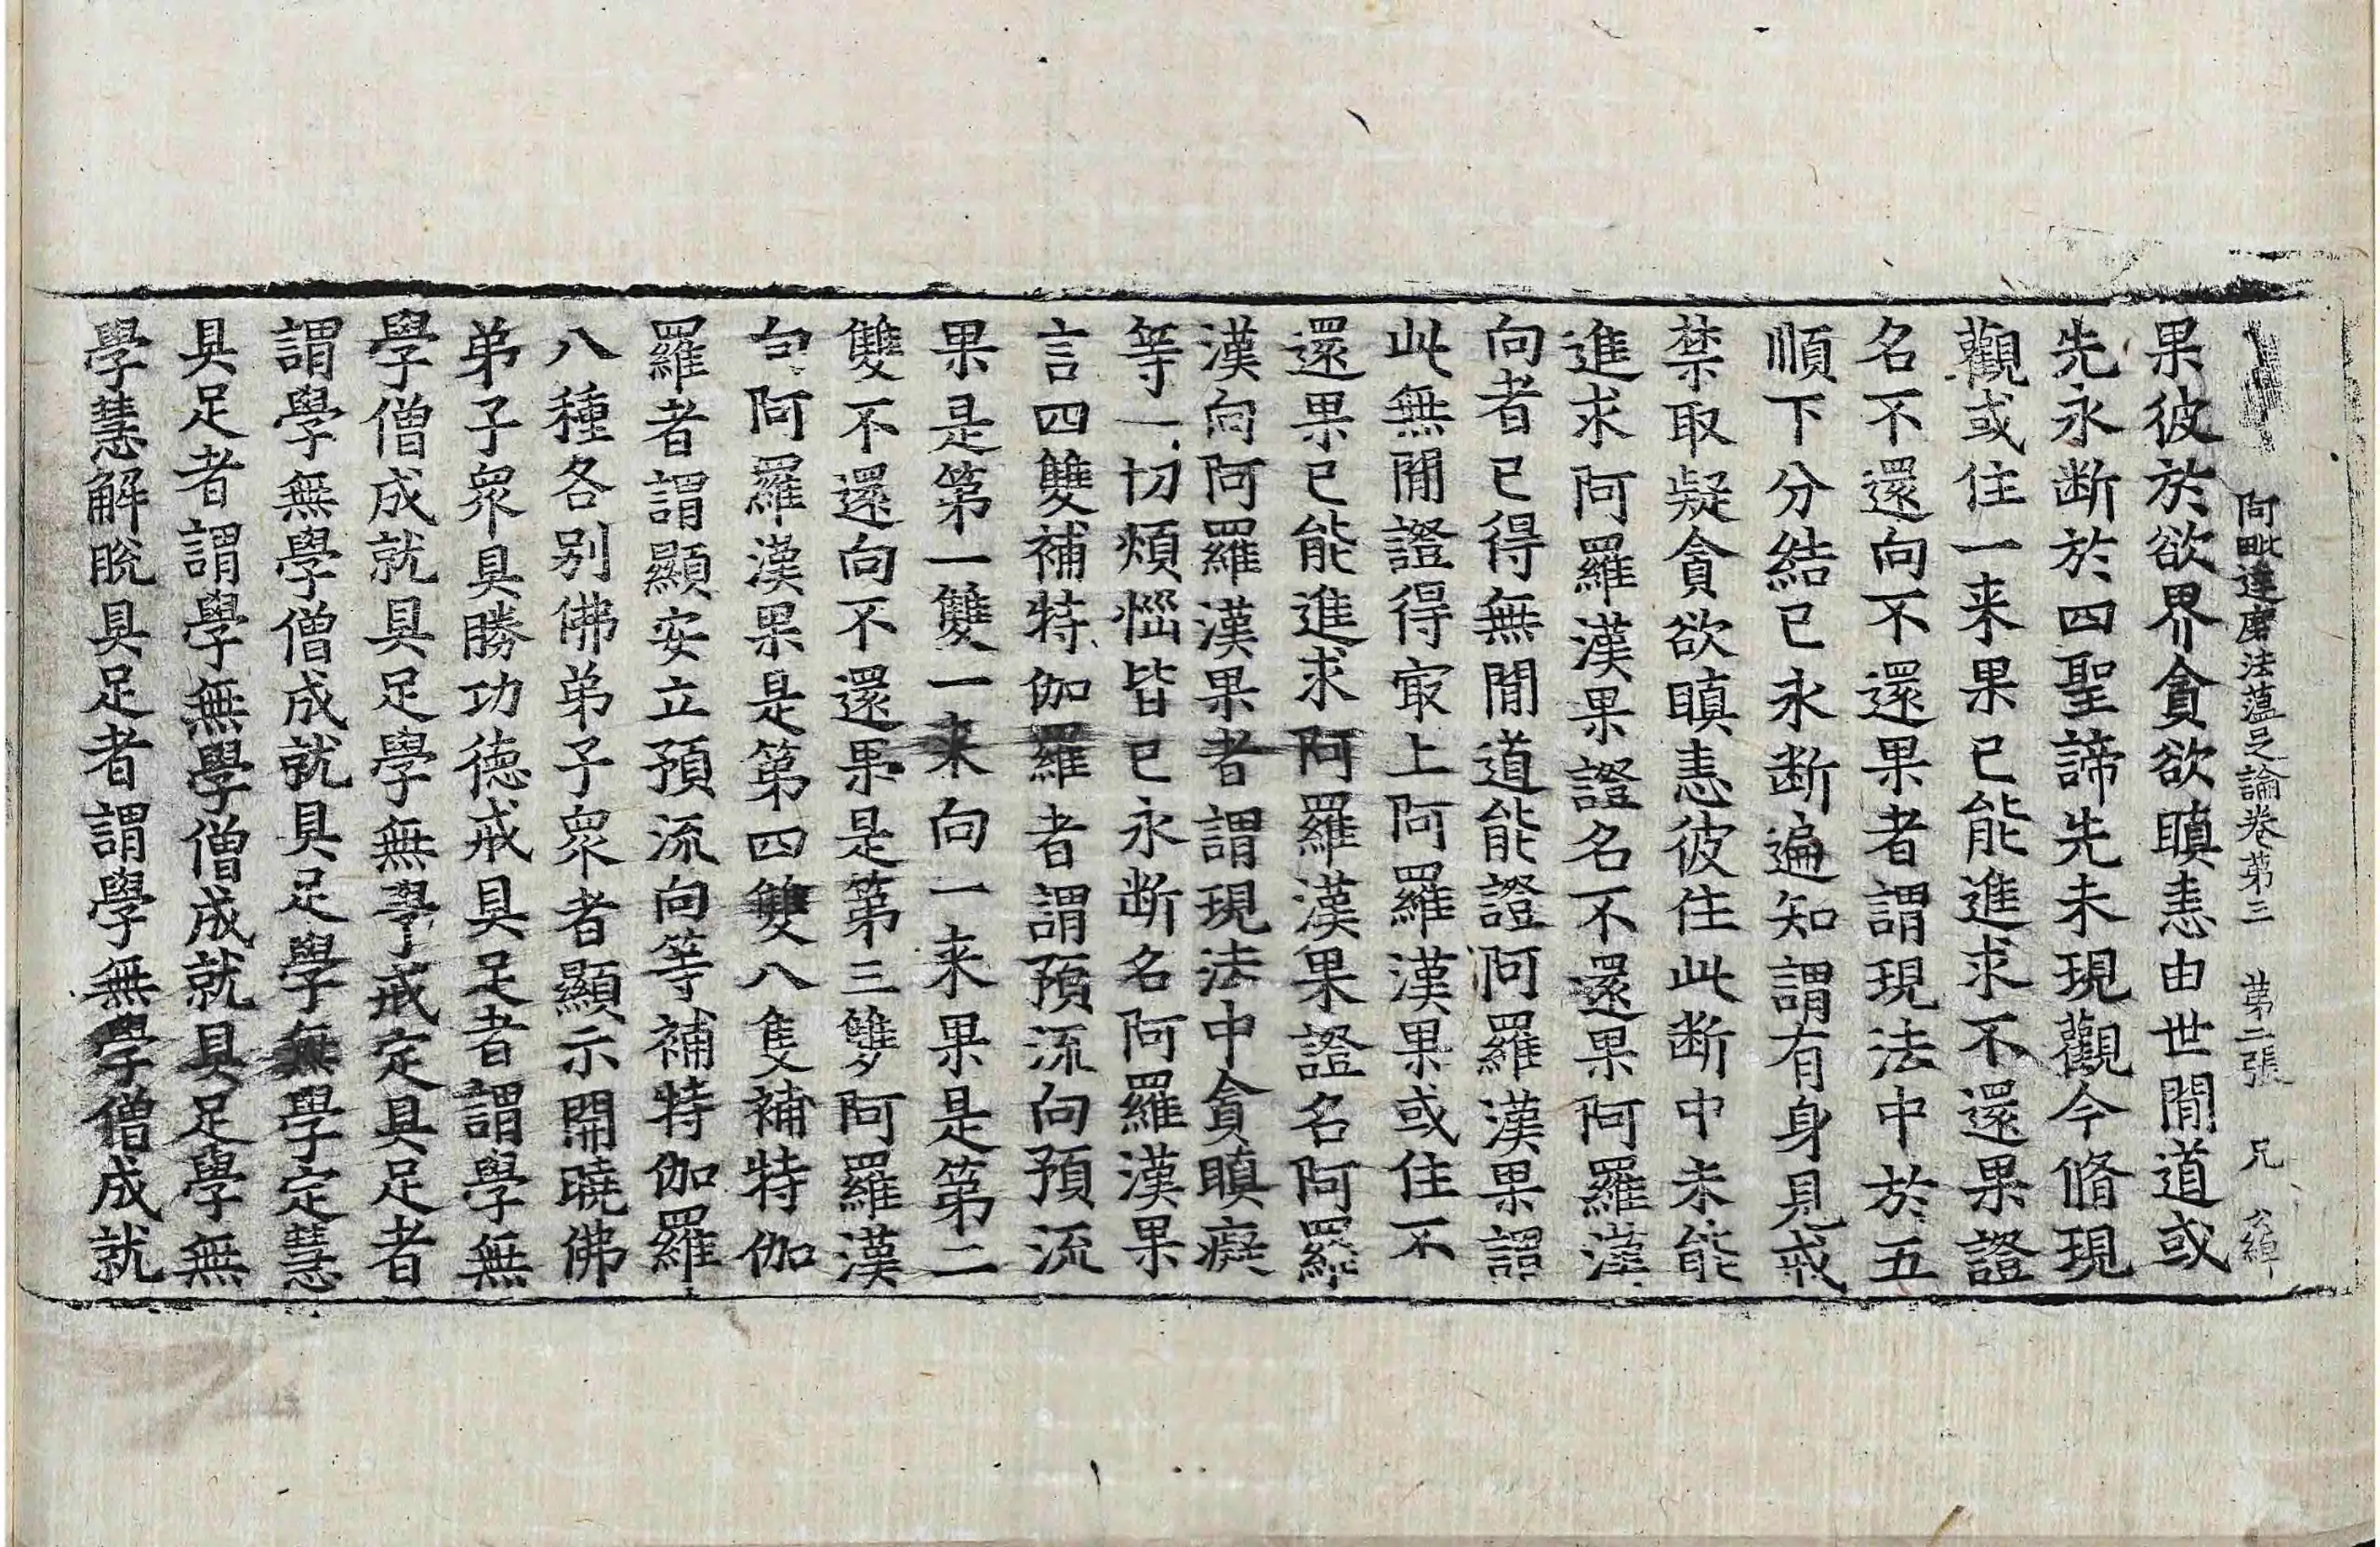 阿毗達磨法薀足論卷第三 第二張 兄 公綽
果彼於欲界貪欲瞋恚由世閒道或
先永断於四聖諦先未現觀今脩現
觀或住一来果已能進求不還果證
名不還向不還果者謂現法中於五
順下分結已永断遍知謂有身見戒
禁取疑貪欲瞋恚彼住此断中未能
進求阿羅漢果證名不還果阿羅漢
向者已得無閒道能證阿羅漢果謂
此無閒證得寂上阿羅漢果或住不
還果已能進求阿羅漢果證名阿羅
漢向阿羅漢果者謂現法中貪瞋癡
等一切煩惱皆已永断名阿羅漢果
言四雙補特伽羅者謂預流向預流
果是第一雙一来向一来果是第二
雙不還向不還果是第三雙阿羅漢
向阿羅漢果是第四雙八隻補特伽
羅者謂顯安立預流向等補特伽羅
八種各别佛弟子衆者顯示開曉佛
弟子衆具勝功德戒具足者謂學無
學僧成就具足學無學戒定具足者
謂學無學僧成就具足學無學定慧
具足者謂學無學僧成就具足學無
學慧解脫具足者謂學無學僧成就